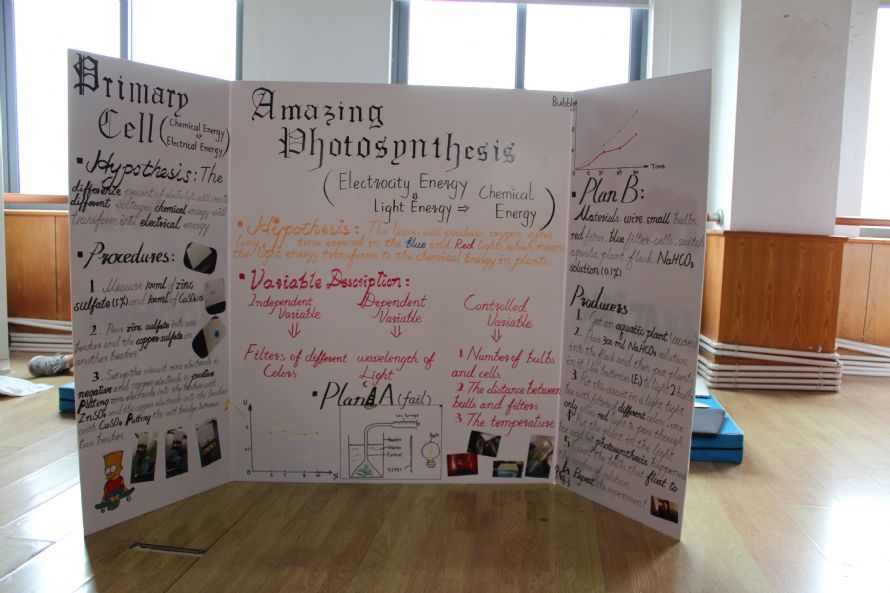 Primary
Cell (Chemical Energy
⇒
Electrical Energy)
Hypothesis: The
difference percent of electrolyte will create
different voltages, chemical energy will
transform into electrical energy
Procedures:
1. Measure 100ml of zinc
sulfate (5%) and 100ml of CuSO4
2. Pour zinc sulfate into one
beaker and the copper sulfate in
another beaker.
3. Set up the circuit zinc electrode is
negative and copper electrode is positive
Putting zinc electrode into the beaker with
ZnSO4 and the copper electrode into the beaker
with CuSO4 Putting the salt bridge between
two beaker.
Amazing
Photosynthesis
(Electrocity Energy
⇓
Light Energy ⇒ Chemical
Energy)
Hypothesis: The leaves will produce oxygen after
long time exposed in the Blue and Red light, which means
the light energy transforms to the chemical energy in plants.
Variable Description:
Independent
Variable
⇓
Filters of different
Colors
Dependent
Variable
⇓
wavelength of
Light
Controlled
Variable
⇓
1. Number of bulbs
and cells
2. The distance between
bulls and filters
3. The temperature
Plan A (fail)
Gas Syringe
Beaker
Water
Funnel
Bulb
Bubble
Time
Plan B:
Materials: wire, small bulbs,
red filter, blue filter, cells, switch
aquatic plant, flask, NaHCO3
solution (0.1%)
Producers
1. Get an aquatic plant
2. Pour 300 ml NaHCO3 solution
into the flask and then put plants
in it. Use batteries (E) to light 2 bulbs
3. Put the circuit in a light tight
box with filters of different colors, one
only allows red light to pass through
4. Put the plant in the light
box and let photosynthesis happened
5. Count the bulbs that float to
the surface of solution
6. Repeat the experiment